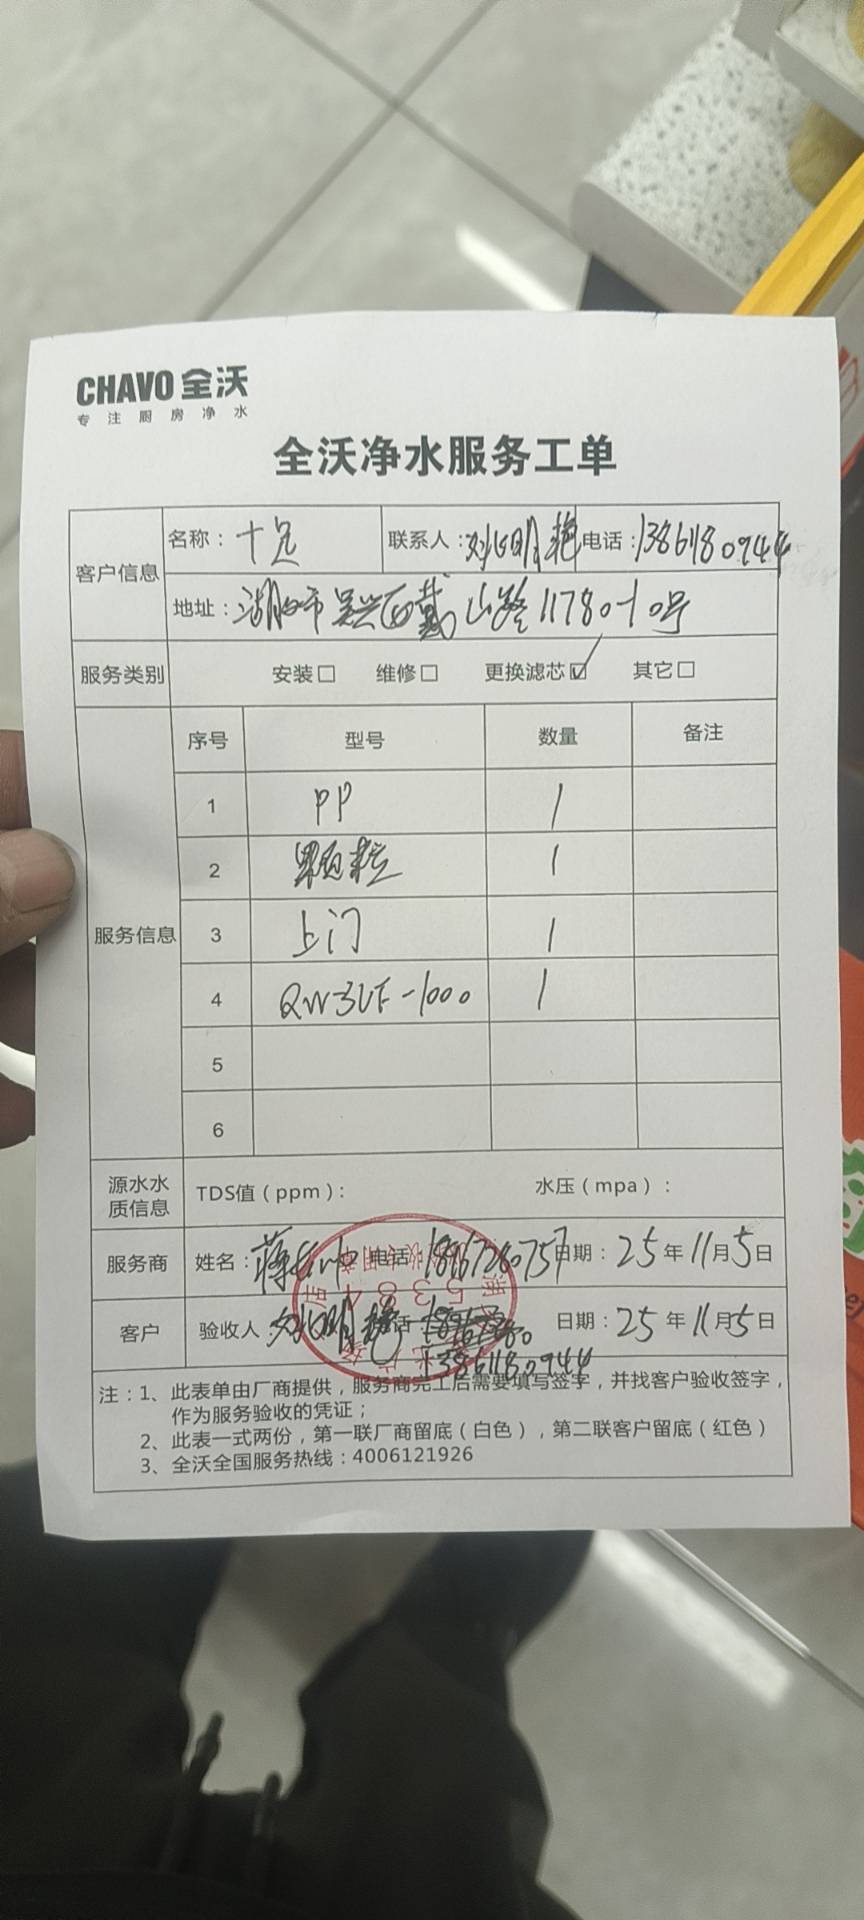 CHAVO 全沃
专注厨房净水
全沃净水服务工单
客户信息
名称：十足 联系人：刘明艳 电话：13861180944
地址：湖州市吴兴区戴山路1178-10号
服务类别 安装□ 维修□ 更换滤芯☑ 其它□
服务信息
序号 型号 数量 备注
1 PP 1
2 颗粒 1
3 上门 1
4 QW3UF-1000 1
5
6
源水水质信息 TDS值（ppm）： 水压（mpa）：
服务商 姓名：蒋 电话 18967280757 日期：25年11月5日
客户 验收人 刘明艳 电话 13861180944 日期：25年11月5日
注：1、此表单由厂商提供，服务商完工后需要填写签字，并找客户验收签字，
作为服务验收的凭证；
2、此表一式两份，第一联厂商留底（白色），第二联客户留底（红色）
3、全沃全国服务热线：4006121926